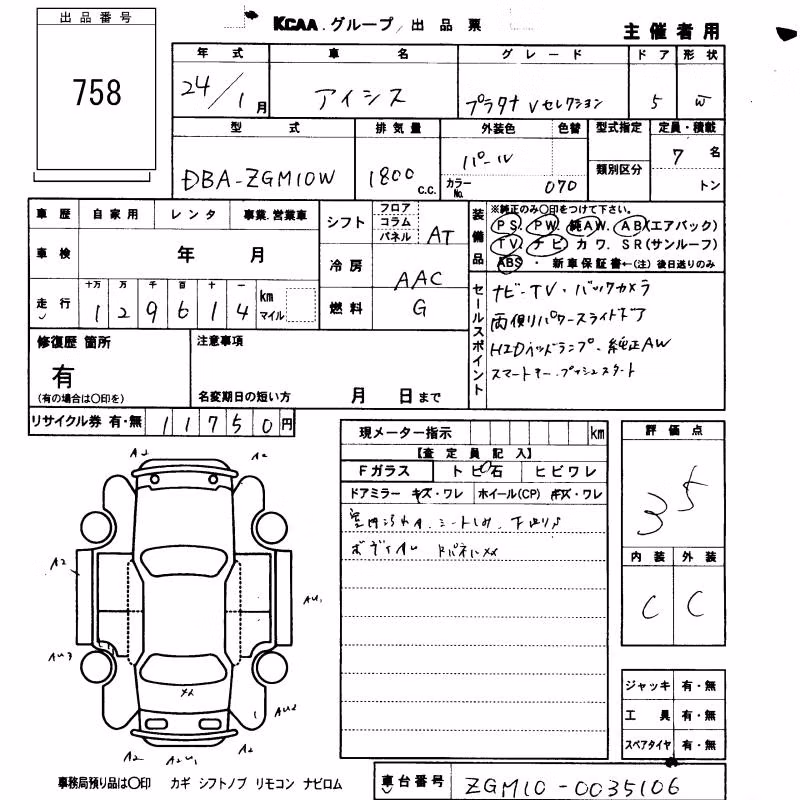 出品番号
758
KCAA.グループ/出品票
主催者用
年式 車名 グレード ドア 形状
24/1月 アイシス プラタナ Vセレクション 5 W
型式 排気量 外装色 色替 型式指定 定員・積載
DBA-ZGM10W 1800 C.C. パール カラーNo. 070 類別区分 7名
トン
車歴 自家用 レンタ 事業.営業車
車検 年 月
走行 十万 万 千 百 十 一 km マイル
129614
シフト フロア コラム パネル AT
冷房 AAC
燃料 G
装備品
※純正のみ○印をつけて下さい。
PS. PW. 純AW. AB(エアバック)
TV. ナビ カワ. SR(サンルーフ)
ABS・新車保証書←(注)後日送りのみ
セールスポイント
ナビ-TV・バックカメラ
両側パワースライドドア
HIDヘッドランプ・純正AW
スマートキー・プッシュスタート
修復歴 箇所
有
(有の場合は○印を)
注意事項
名変期日の短い方 月 日まで
リサイクル券 有・無 11750円
現メーター指示 km
【査定員記入】
Fガラス トビ石 ヒビワレ
ドアミラー キズ・ワレ ホイール(CP) キズ・ワレ
評価点
3.5
内装 外装
C C
A2 A2
A2
AU1
AU3
AU2
A2 A2 U1 A2
ジャッキ 有・無
工具 有・無
スペアタイヤ 有・無
事務局預り品は○印 カギ シフトノブ リモコン ナビロム
車台番号 ZGM10-0035106